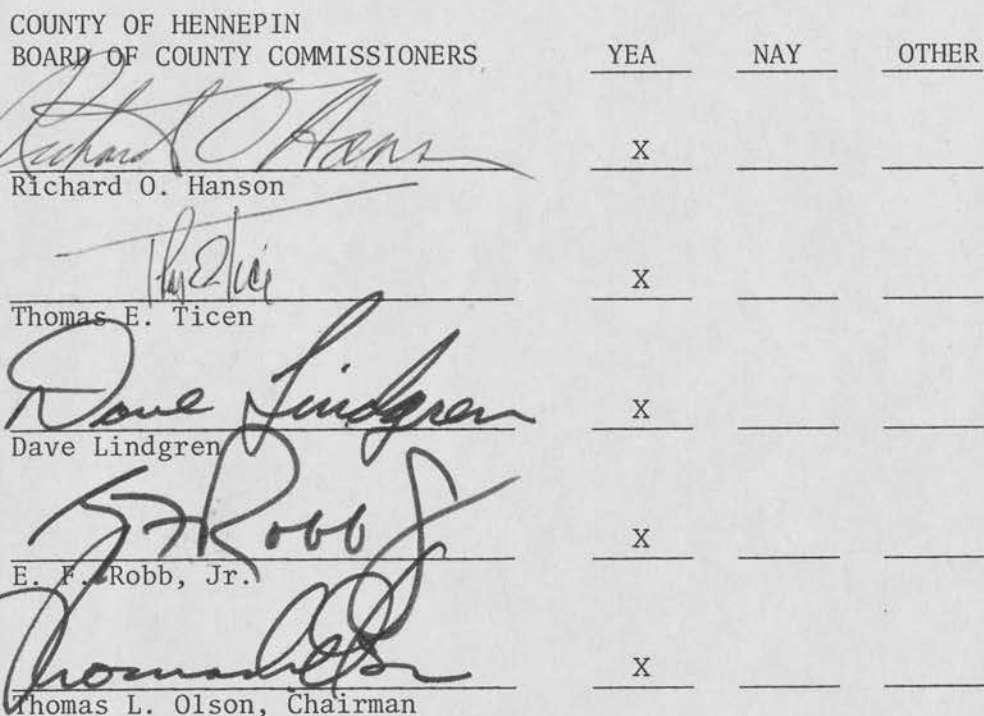 COUNTY OF HENNEPIN
BOARD OF COUNTY COMMISSIONERS YEA NAY OTHER
Richard O Hans X
Richard O. Hanson
X
Thomas E. Ticen
Dave Lindgren X
Dave Lindgren
E F Robb Jr X
E. F. Robb, Jr.
Thomas L Olson X
Thomas L. Olson, Chairman